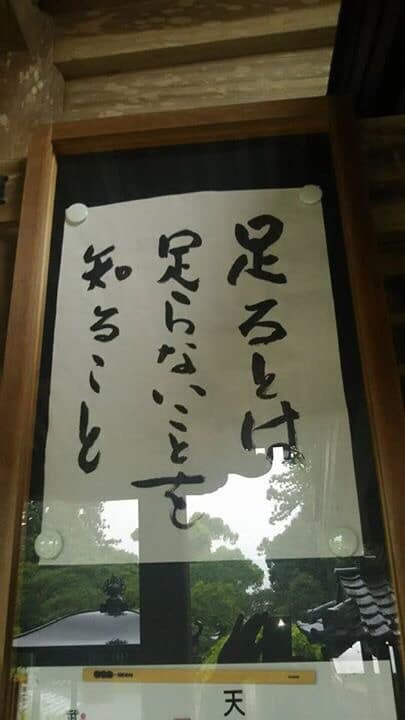 足るとは
足らないことを
知ること
天
武